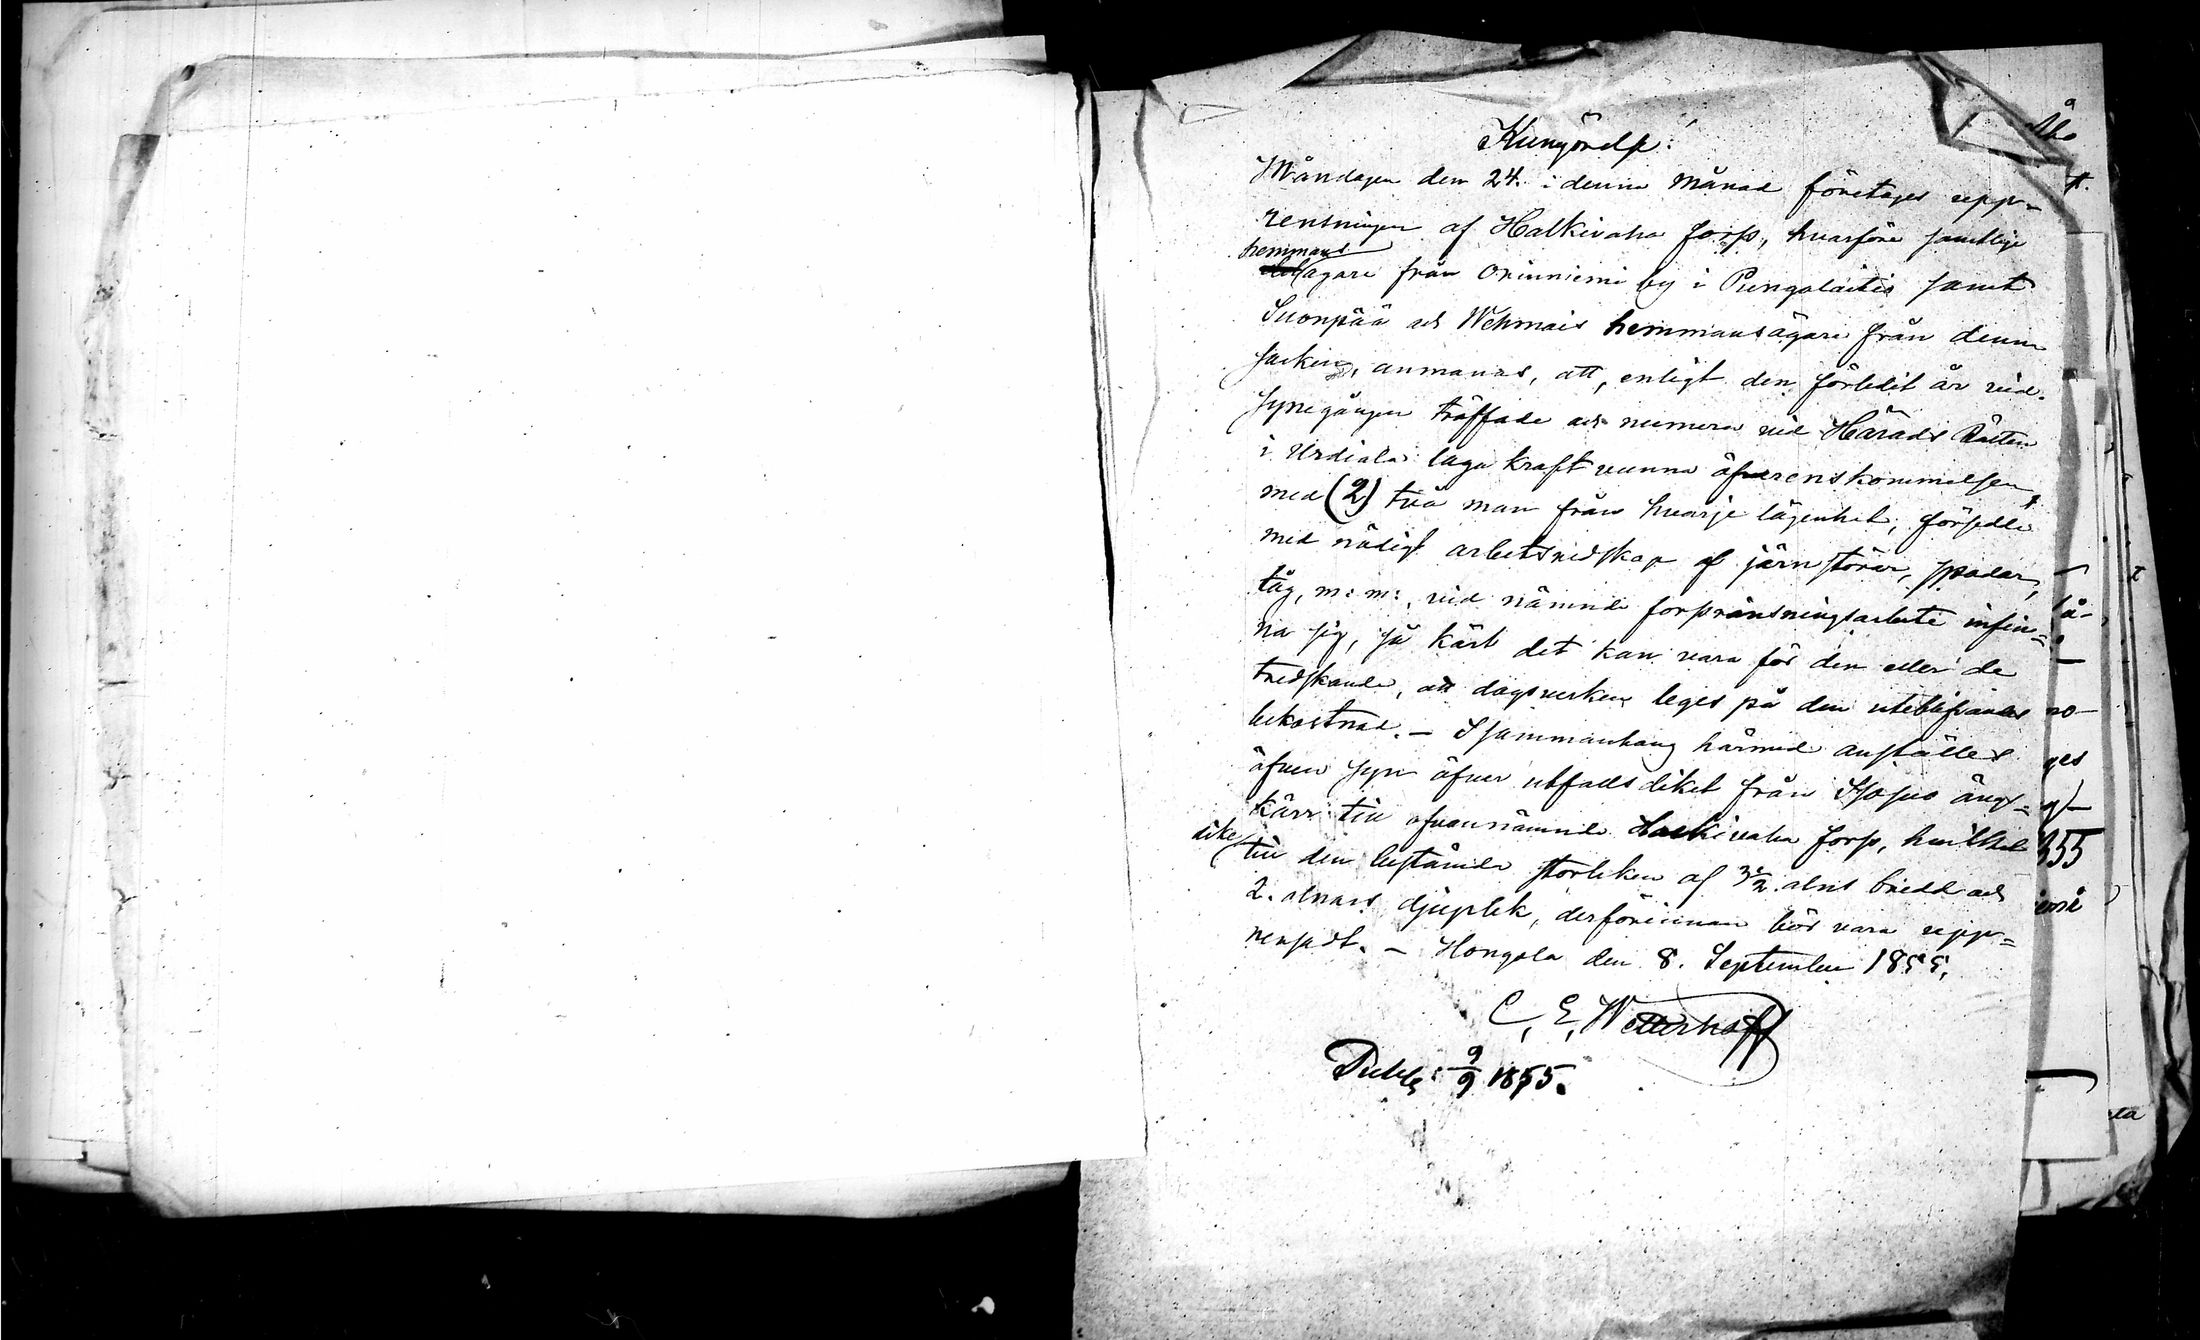 Kungörelse!
Måndagen den 24. i denna Månad företages upp=
rensningen af Halkivaha fors, hvarföre samtlige
hemmans
ägare från Orinniemi by i Pungalaitis samt
Suonpää och Wehmais hemmansägare från denna
socken, anmanas, att, enligt den förledit år vid
synegången träffade och numera vid Härads Rätten
i Urdiala laga kraft vunna öfverenskommelsen,
med (2) två man från hvarje lägenhet, försedde
med nödigt arbetsredskap af järnstörar, spadar,
tåg, m: m:, vid nämnde forsränsningsarbete infin=
na sig, så kärt det kan vara för den eller de
tredskande, att dagsverken leges på den uteblifvandes
bekostnad. – I sammanhang härmed anställes
äfven syn öfver utfallsdiket från Isosuo ängs=
kärr till ofvannämnde Halkivaha fors, hvilket
dike
till den bestämda storleken af 3½ alns bredd och
2. alnars djuplek, derförinnan bör vara upp=
rensadt. – Hongola den 8. September 1855,
C, E, Wetterhoff
Publ: 9/9 1855.
Åbo
t.
så-
no-
ges
g/-
355
ta